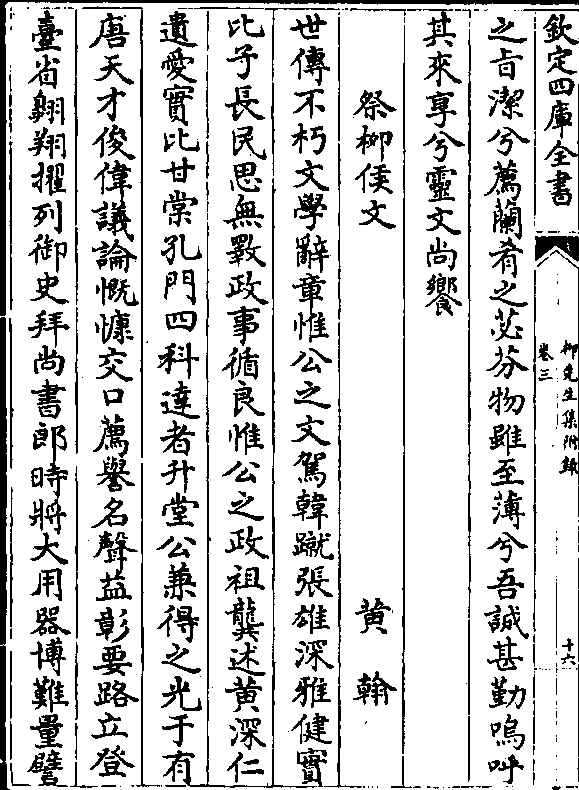 欽定四庫全書
柳先生集附錄
卷三
十六
之旨潔兮薦蘭肴之苾芬物雖至薄兮吾誠甚勤嗚呼
其來享兮靈文尚饗
祭柳侯文
黄翰
世傳不朽文學辭章惟公之文駕韓蹴張雄深雅健實
比子長民思無斁政事循良惟公之政祖龔述黄深仁
遺愛實比甘棠孔門四科達者升堂公兼得之光于有
唐天才俊偉議論慨慷交口薦譽名聲益彰要路立登
臺省翱翔擢列御史拜尚書郎時將大用器博難量譬